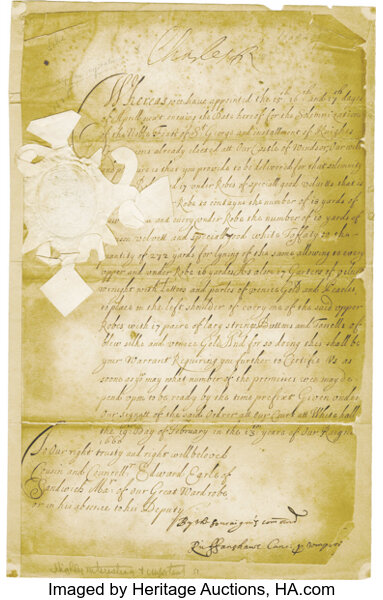 Charles R
Whereas we have appointed the 15th 16th and 17th dayes
of Aprill next ensuing the Date hereof for the Solemnization
of the Noble Feast of St George and installment of Knights
already elected att Our Castle of Windsor Our will
and pleasure is that you provide to be delivered for that solemnity
17 under Robes of speciall good velvett that is
Robe to containe the number of 18 yards of
and every under Robe the number of 10 yards of
velvett and speciall good white Taffaty to the
quantity of 272 yards for lyning of the same allowing to every
upper and under Robe 16 yards, As also 17 Garters of
wrought with Letters and purles of venice Gold and
to place in the left shoulder of every one of the said upper
Robes with 17 paire of lace strings Buttons and Tassells of
blew silke and venice Gold And for so doing this shall be
your Warrant Requiring you further to Certifie Us as
soone as you may what number of the premisses will be
to be ready by the time prefixt Given under
Our signett of the said Order att our Court att Whitehall
the 19th Day of February in the 13th yeare of Our Raigne
1660
To Our right trusty and right wellbeloved
Cousin and Councellr Edward Earle of
Sandwich Mar of our Great Wardrobe
or in his absence to his Deputy
By the Soveraigne's command
Ric Fanshawe
Highly interesting & important
Imaged by Heritage Auctions, HA.com